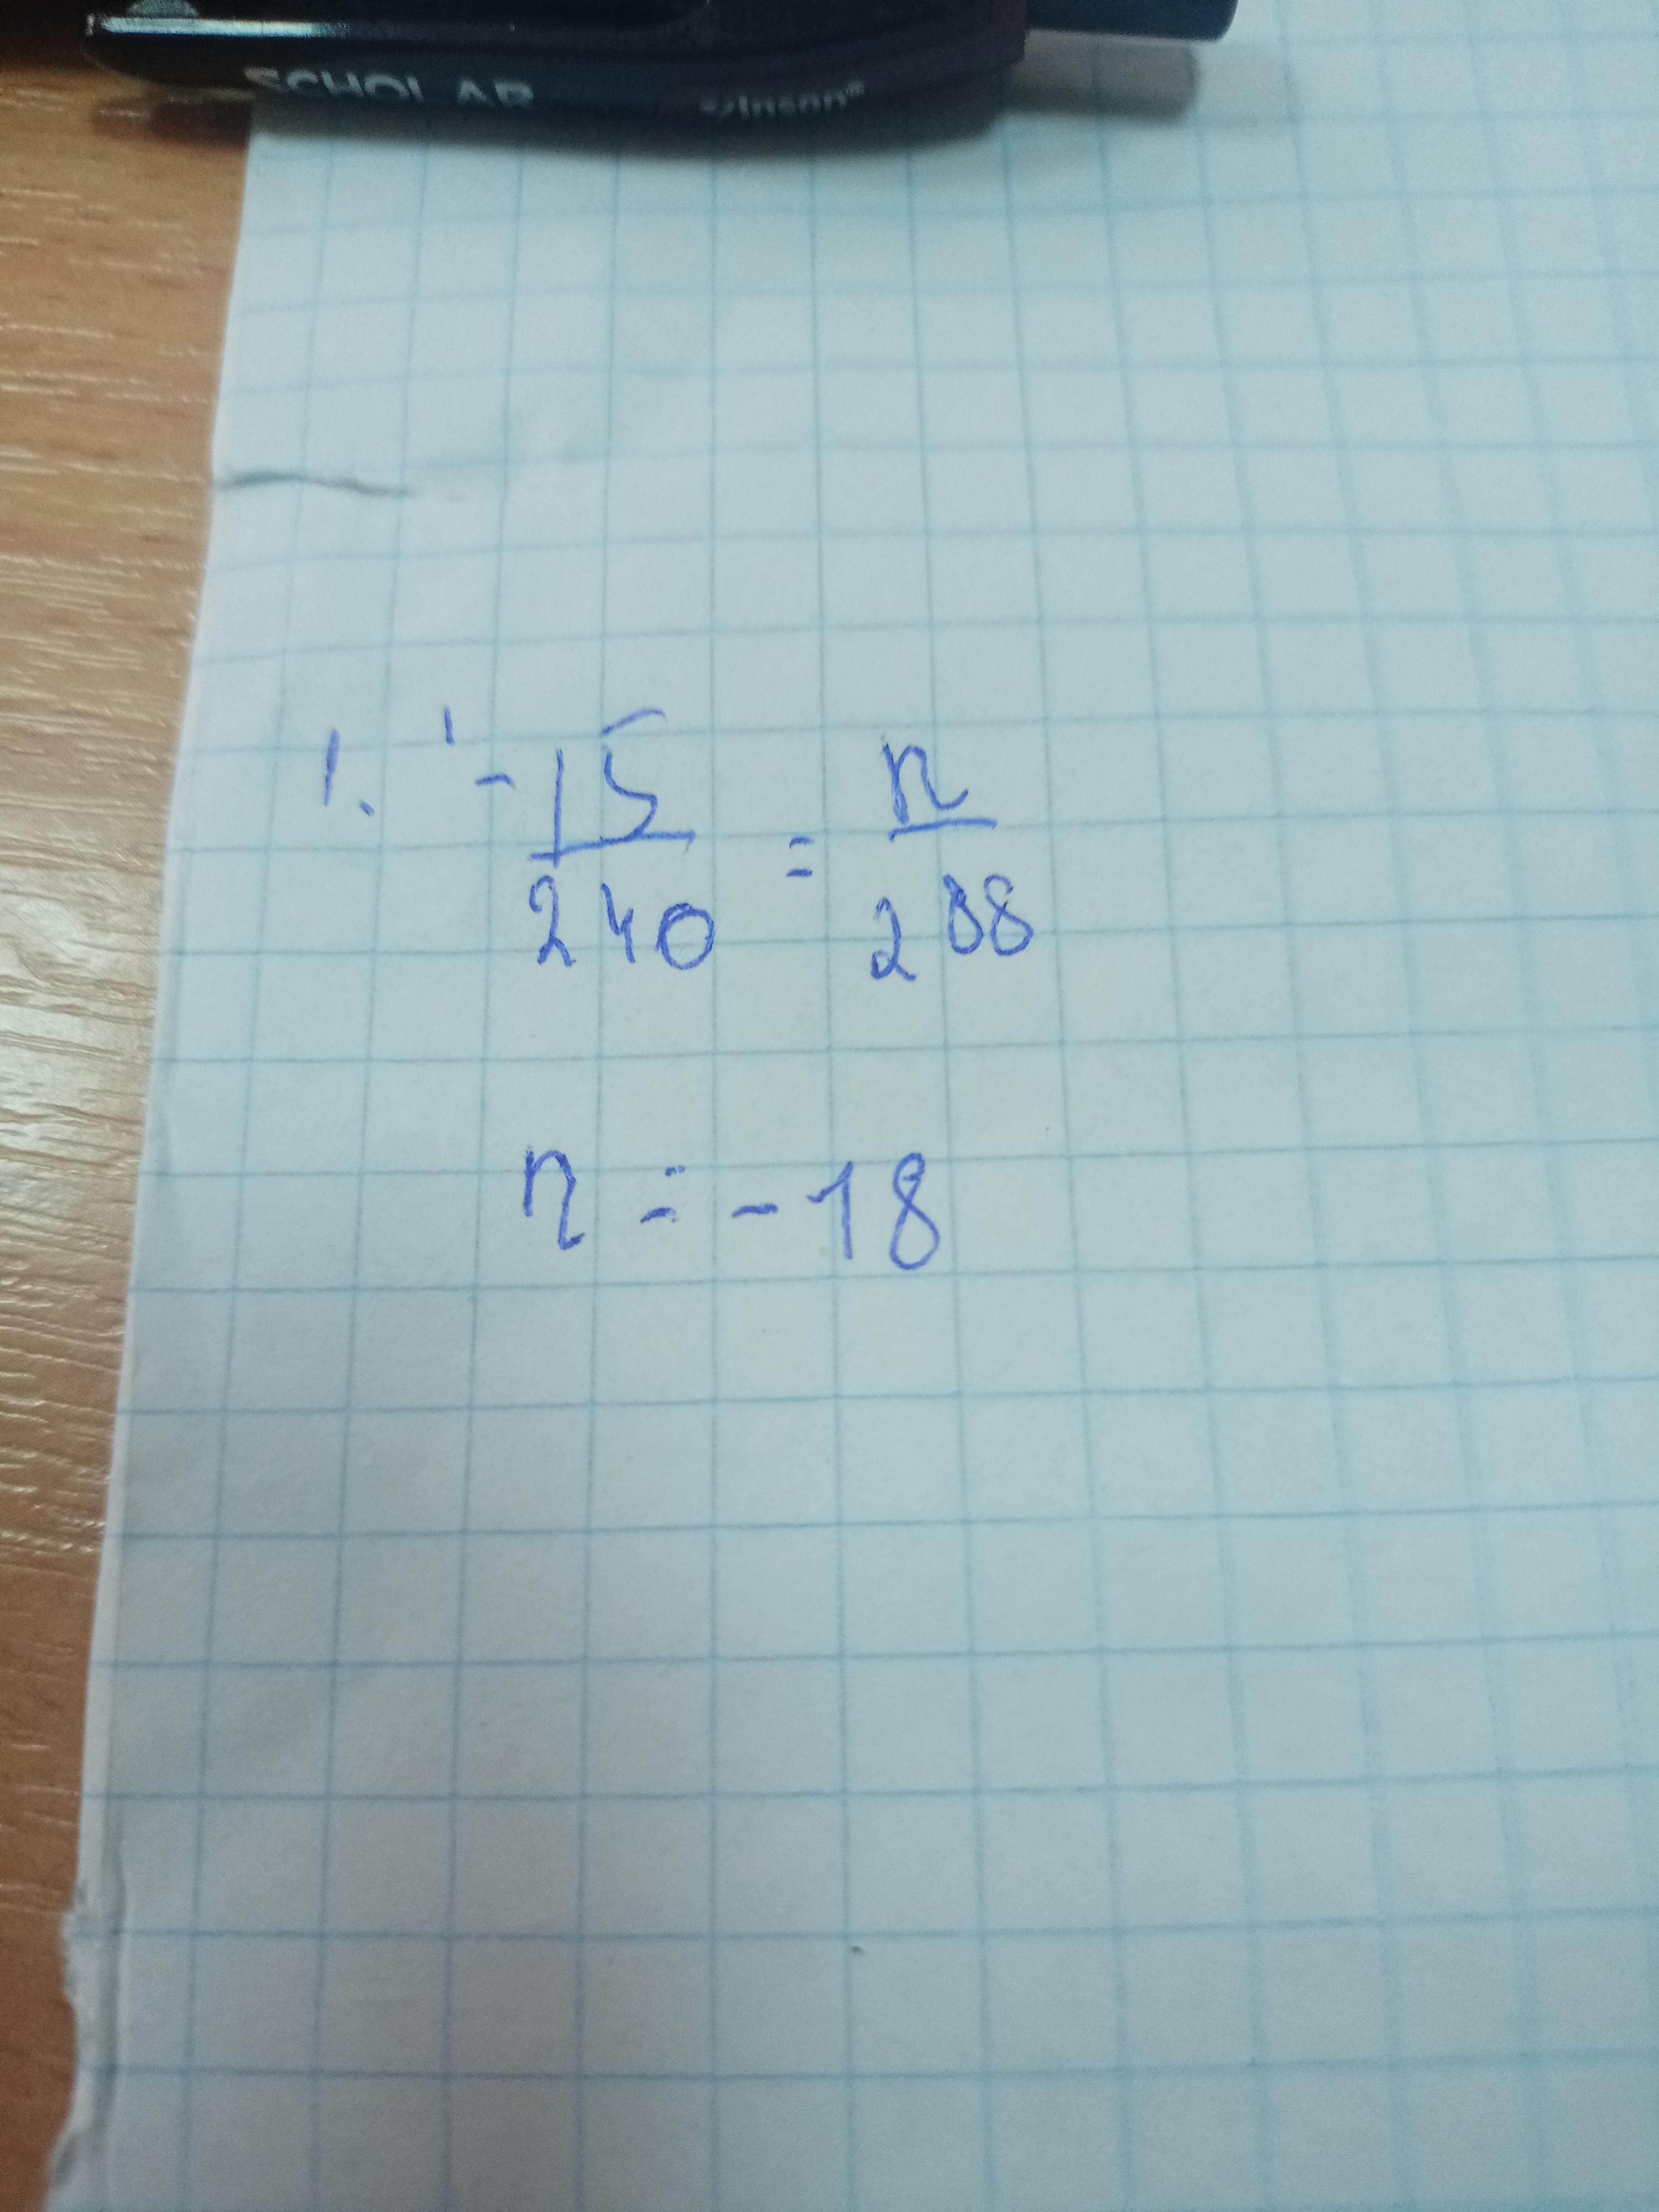 SCHOLAR
1. -15/240 = n/288
n = -18